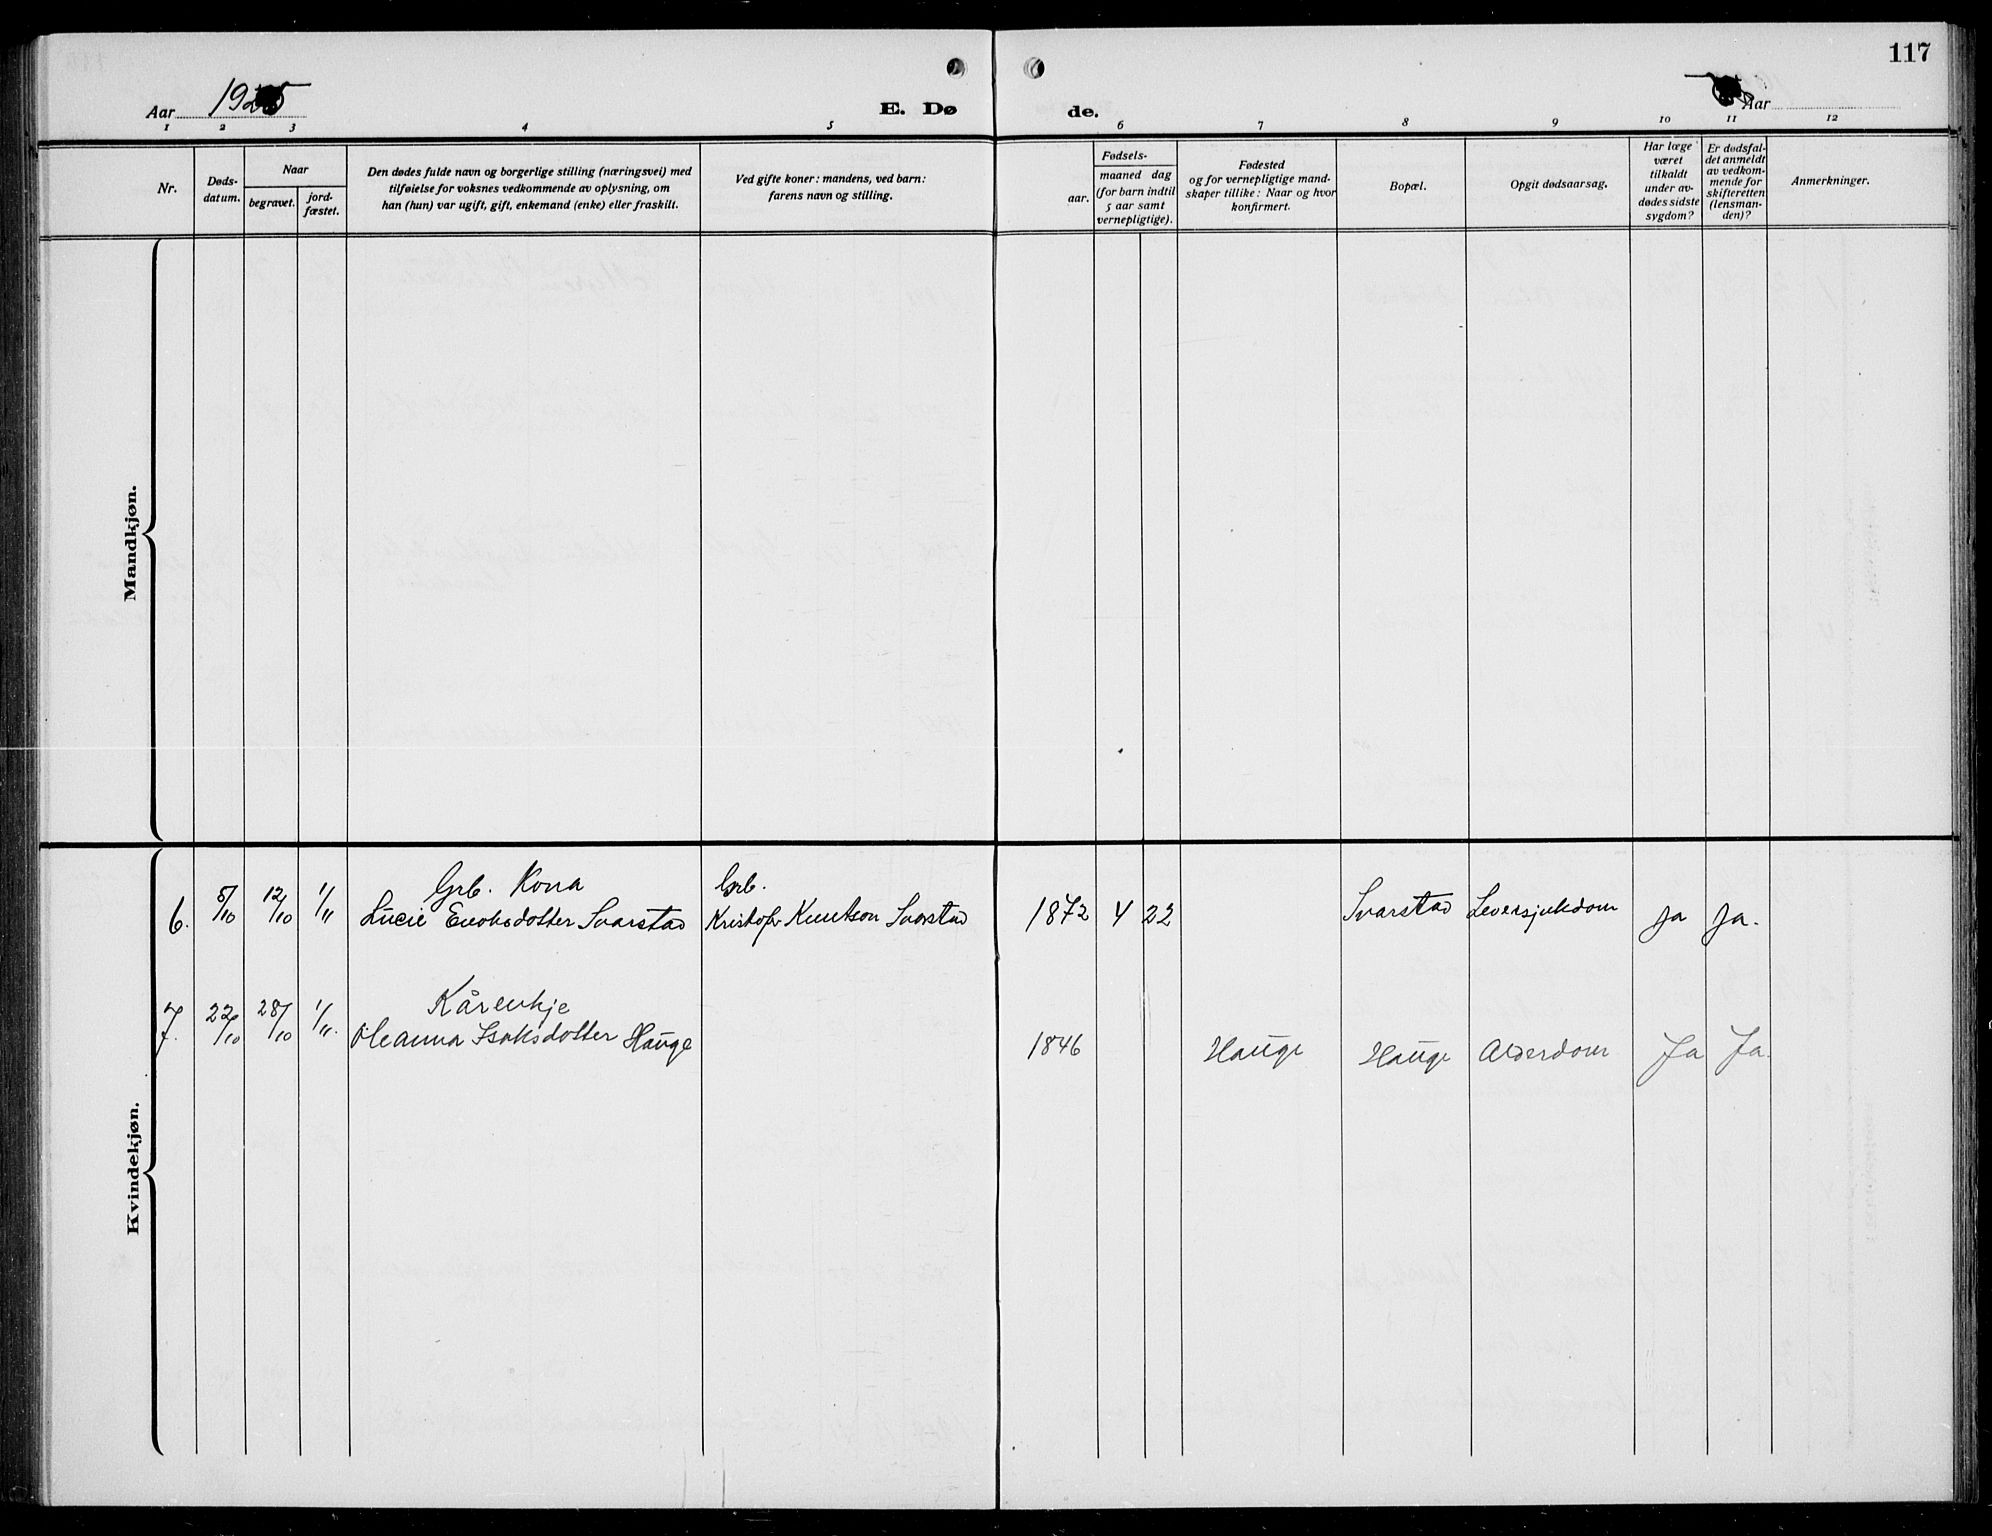 117
Aar 1925
E. Dø
de.
Aar
1 2 3 4 5 6 7 8 9 10 11 12
Nr.
Døds-
datum.
Naar
begravet.
jord-
fæstet.
Den dødes fulde navn og borgerlige stilling (næringsvei) med
tilføielse for voksnes vedkommende av oplysning, om
han (hun) var ugift, gift, enkemand (enke) eller fraskilt.
Ved gifte koner: mandens, ved barn:
farens navn og stilling.
Fødsels-
aar.
maaned dag
(for barn indtil
5 aar samt
vernepligtige).
Fødested
og for vernepligtige mand-
skaper tillike: Naar og hvor
konfirmert.
Bopæl.
Opgit dødsaarsag.
Har læge
været
tilkaldt
under av-
dødes sidste
sygdom?
Er dødsfal-
det anmeldt
av vedkom-
mende for
skifteretten
(lensman-
den)?
Anmerkninger.
Mandkjøn.
Kvindekjøn.
Grb. Kona Grb.
6. 5/10 12/10 1/11 Lucie Enoksdotter Svarstad Kristofer Knutson Svarstad 1872 4 22 Svarstad Leversjukdom Ja Ja.
Kårenkje
7. 22/10 28/10 1/11. Oleanna Isaksdotter Hauge 1846 Hauge Hauge Alderdom Ja Ja.